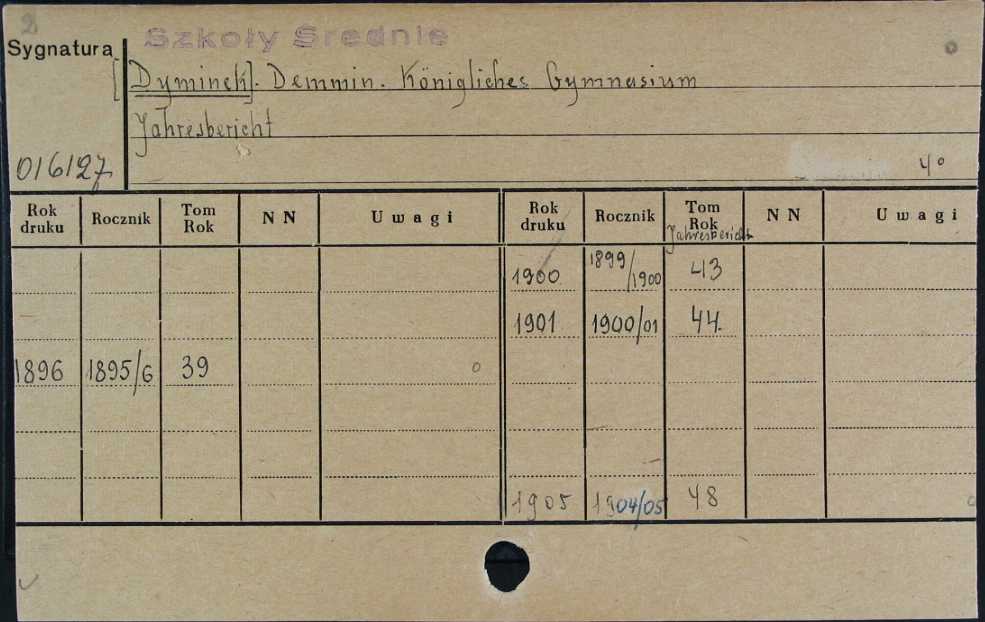 2
Szkoły Średnie
Sygnatura
[Dyminek]. Demmin. Königliches Gymnasium
Jahresbericht
016127
4°
Rok druku Rocznik Tom Rok NN Uwagi Rok druku Rocznik Tom Rok NN Uwagi
Jahresbericht
1900 1899/1900 43
1901 1900/01 44
1896 1895/6 39
1905 1904/05 48